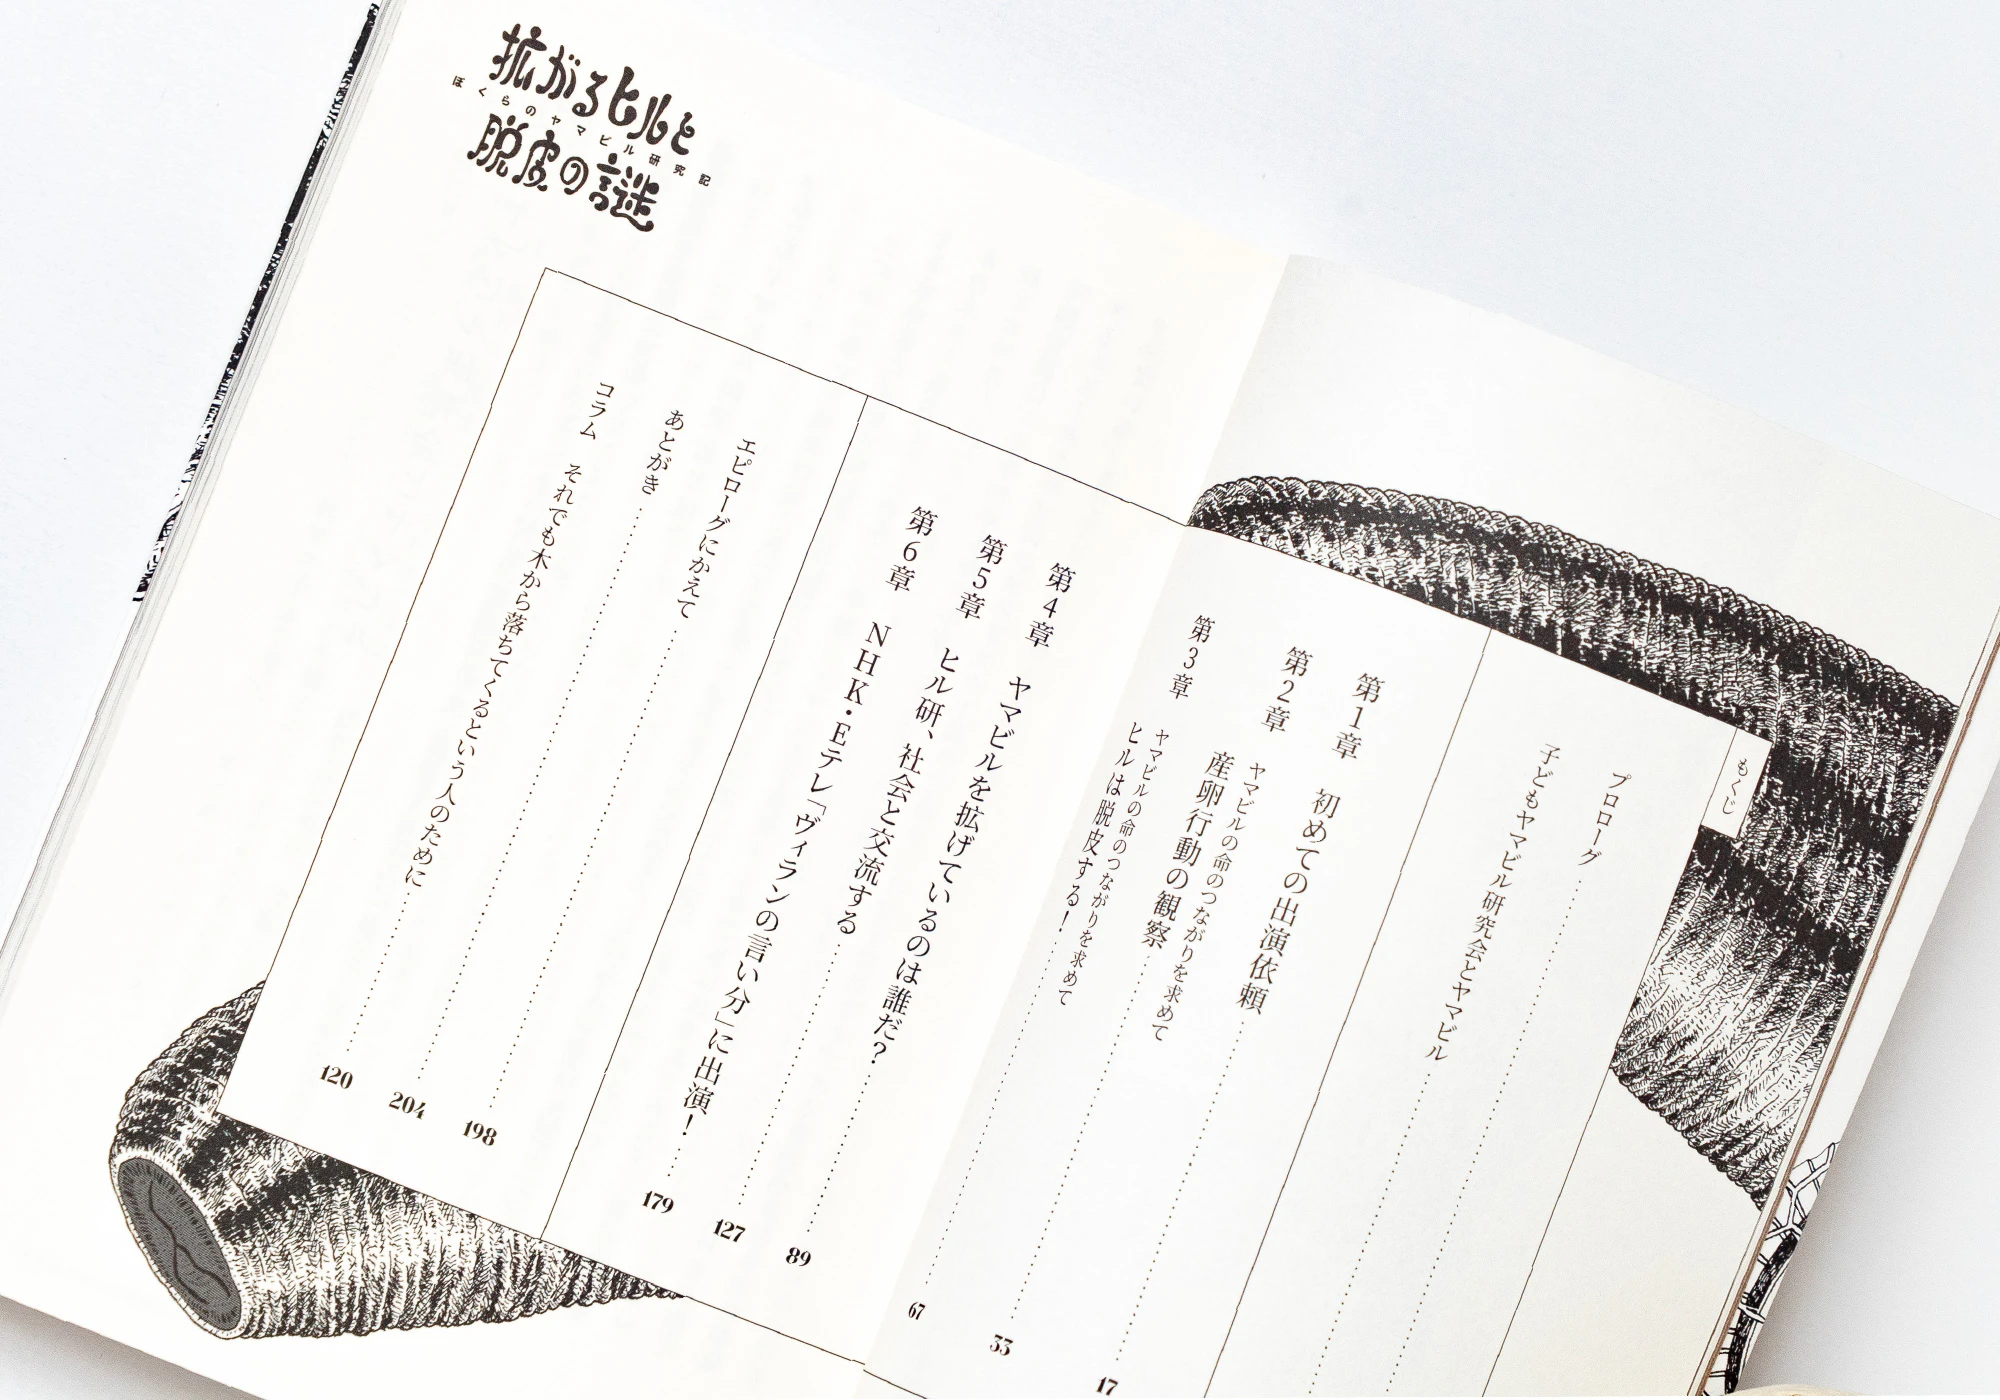 拡がるヒルと
ぼくらのヤマビル研究記
脱皮の謎
もくじ
プロローグ
子どもヤマビル研究会とヤマビル
第1章 初めての出演依頼 17
第2章 ヤマビルの命のつながりを求めて
産卵行動の観察 33
第3章 ヤマビルの命のつながりを求めて
ヒルは脱皮する! 67
第4章 ヤマビルを拡げているのは誰だ? 89
第5章 ヒル研、社会と交流する 127
第6章 NHK・Eテレ「ヴィランの言い分」に出演! 179
エピローグにかえて 198
あとがき 204
コラム それでも木から落ちてくるという人のために 120